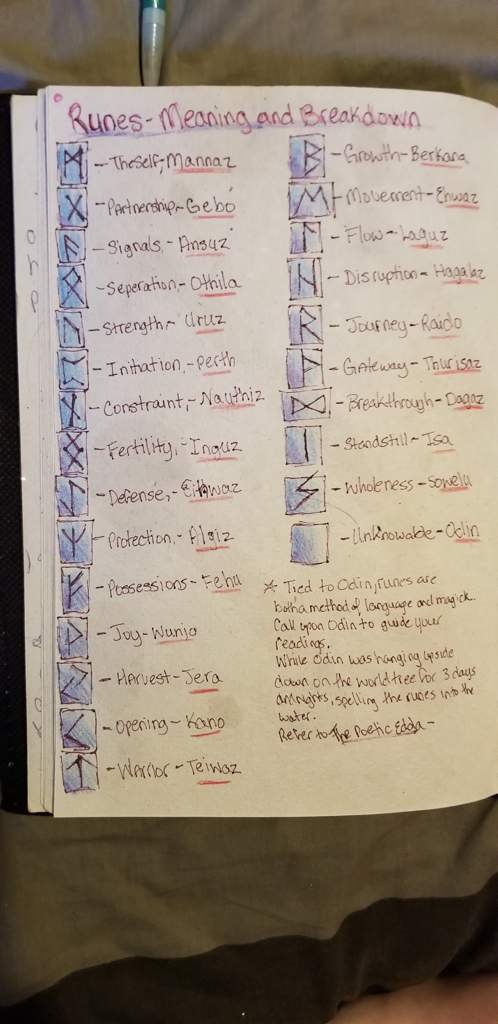 Runes - Meaning and Breakdown
ᛗ - The self, - Mannaz
ᚷ - Partnership - Gebo
ᚨ - Signals - Ansuz
ᛟ - Seperation, - Othila
ᚢ - Strength - Uruz
ᛈ - Initiation, - Perth
ᚾ - Constraint, - Nauthiz
ᛝ - Fertility, - Inguz
ᛇ - Defense, - Eihwaz
ᛉ - Protection, - Algiz
ᚠ - Possessions - Fehu
ᚹ - Joy - Wunjo
ᛃ - Harvest - Jera
ᚲ - Opening - Kano
ᛏ - Warrior - Teiwaz
ᛒ - Growth - Berkana
ᛖ - Movement - Ehwaz
ᛚ - Flow - Laguz
ᚺ - Disruption - Hagalaz
ᚱ - Journey - Raido
ᚦ - Gateway - Thurisaz
ᛞ - Breakthrough - Dagaz
ᛁ - Standstill - Isa
ᛊ - Wholeness - Sowelu
- Unknowable - Odin
* Tied to Odin, runes are
both a method of language and magick.
Call upon Odin to guide your
readings.
While Odin was hanging upside
down on the world tree for 3 days
and nights, spelling the runes into the
water.
Refer to The Poetic Edda -